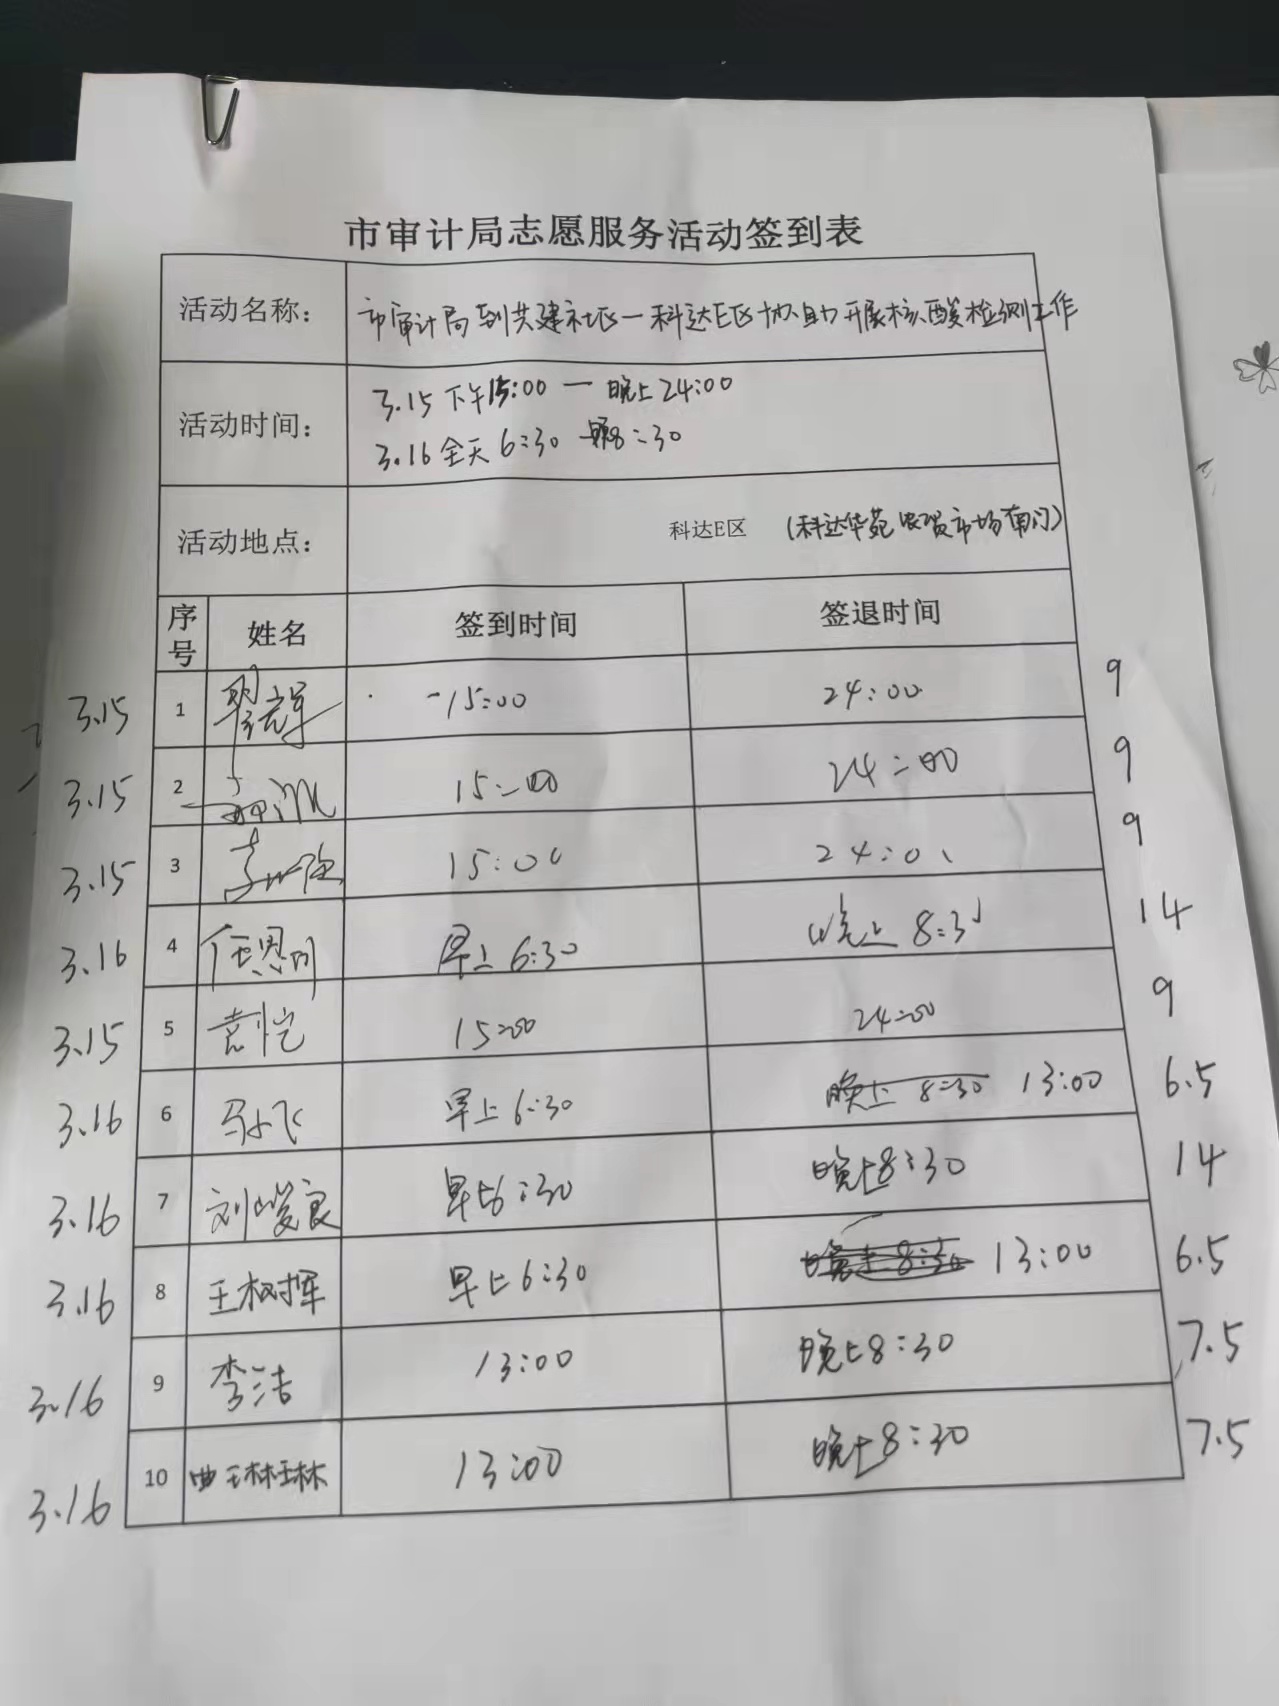 市审计局志愿服务活动签到表
活动名称： 市审计局到共建社区一科达E区协助开展核酸检测工作
活动时间： 3.15 下午15:00 一 晚上24:00
3.16 全天 6:30 晚8:30
活动地点： 科达E区 (科达华苑农贸市场南门)
序号 姓名 签到时间 签退时间
3.15 1 15:00 24:00 9
3.15 2 15:00 24:00 9
3.15 3 15:00 24:00 9
3.16 4 早上 6:30 晚上 8:30 14
3.15 5 袁恺 15:00 24:00 9
3.16 6 马小飞 早上 6:30 晚上 8:30 13:00 6.5
3.16 7 刘峻良 早上6:30 晚上8:30 14
3.16 8 王树挥 早上6:30 晚上 8:30 13:00 6.5
3.16 9 李洁 13:00 晚上8:30 7.5
3.16 10 曲琳琳 13:00 晚上8:30 7.5